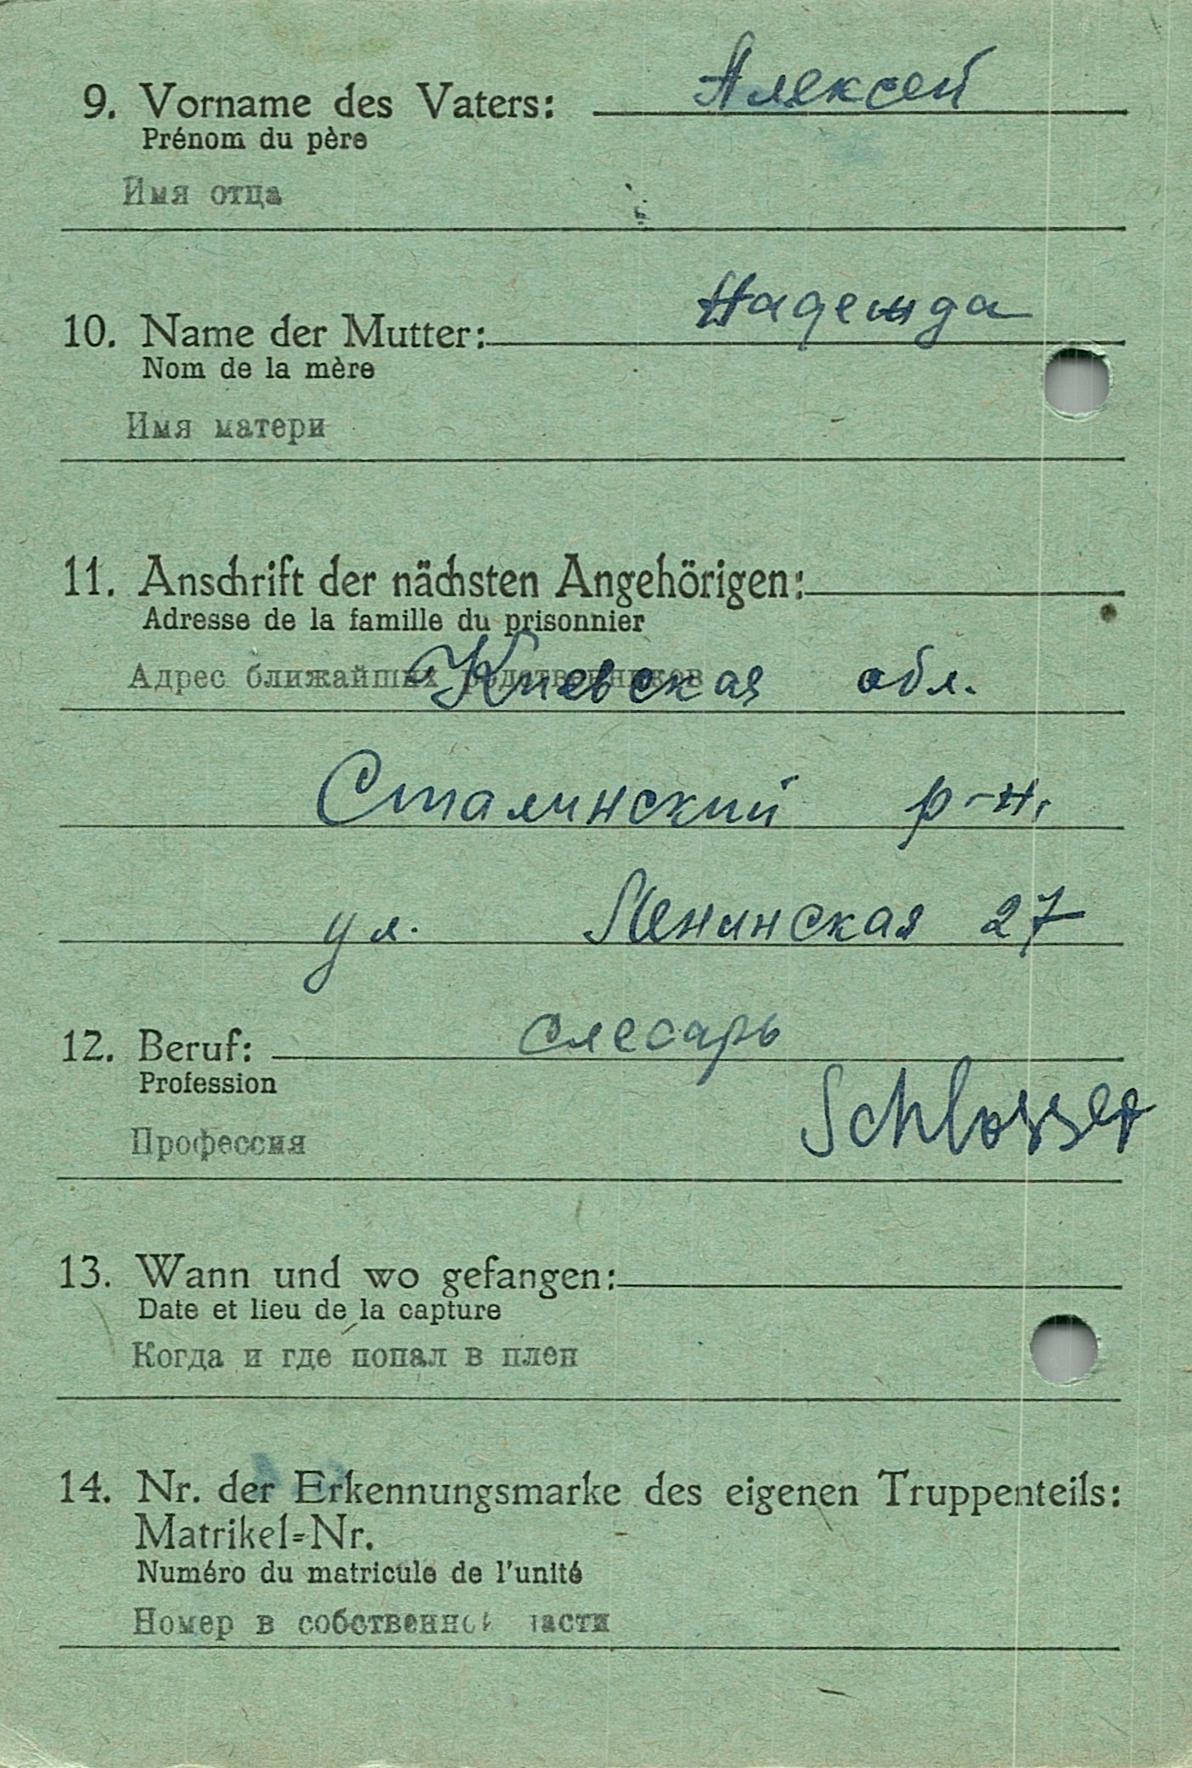 9. Vorname des Vaters: Алексей
Prénom du père
Имя отца
10. Name der Mutter: Надежда
Nom de la mère
Имя матери
11. Anschrift der nächsten Angehörigen:
Adresse de la famille du prisonnier
Адрес ближайших родственников
Киевская обл.
Сталинский р-н,
ул. Ленинская 27
12. Beruf: слесарь
Profession
Schlosser
Профессия
13. Wann und wo gefangen:
Date et lieu de la capture
Когда и где попал в плен
14. Nr. der Erkennungsmarke des eigenen Truppenteils:
Matrikel=Nr.
Numéro du matricule de l'unité
Номер в собственной части